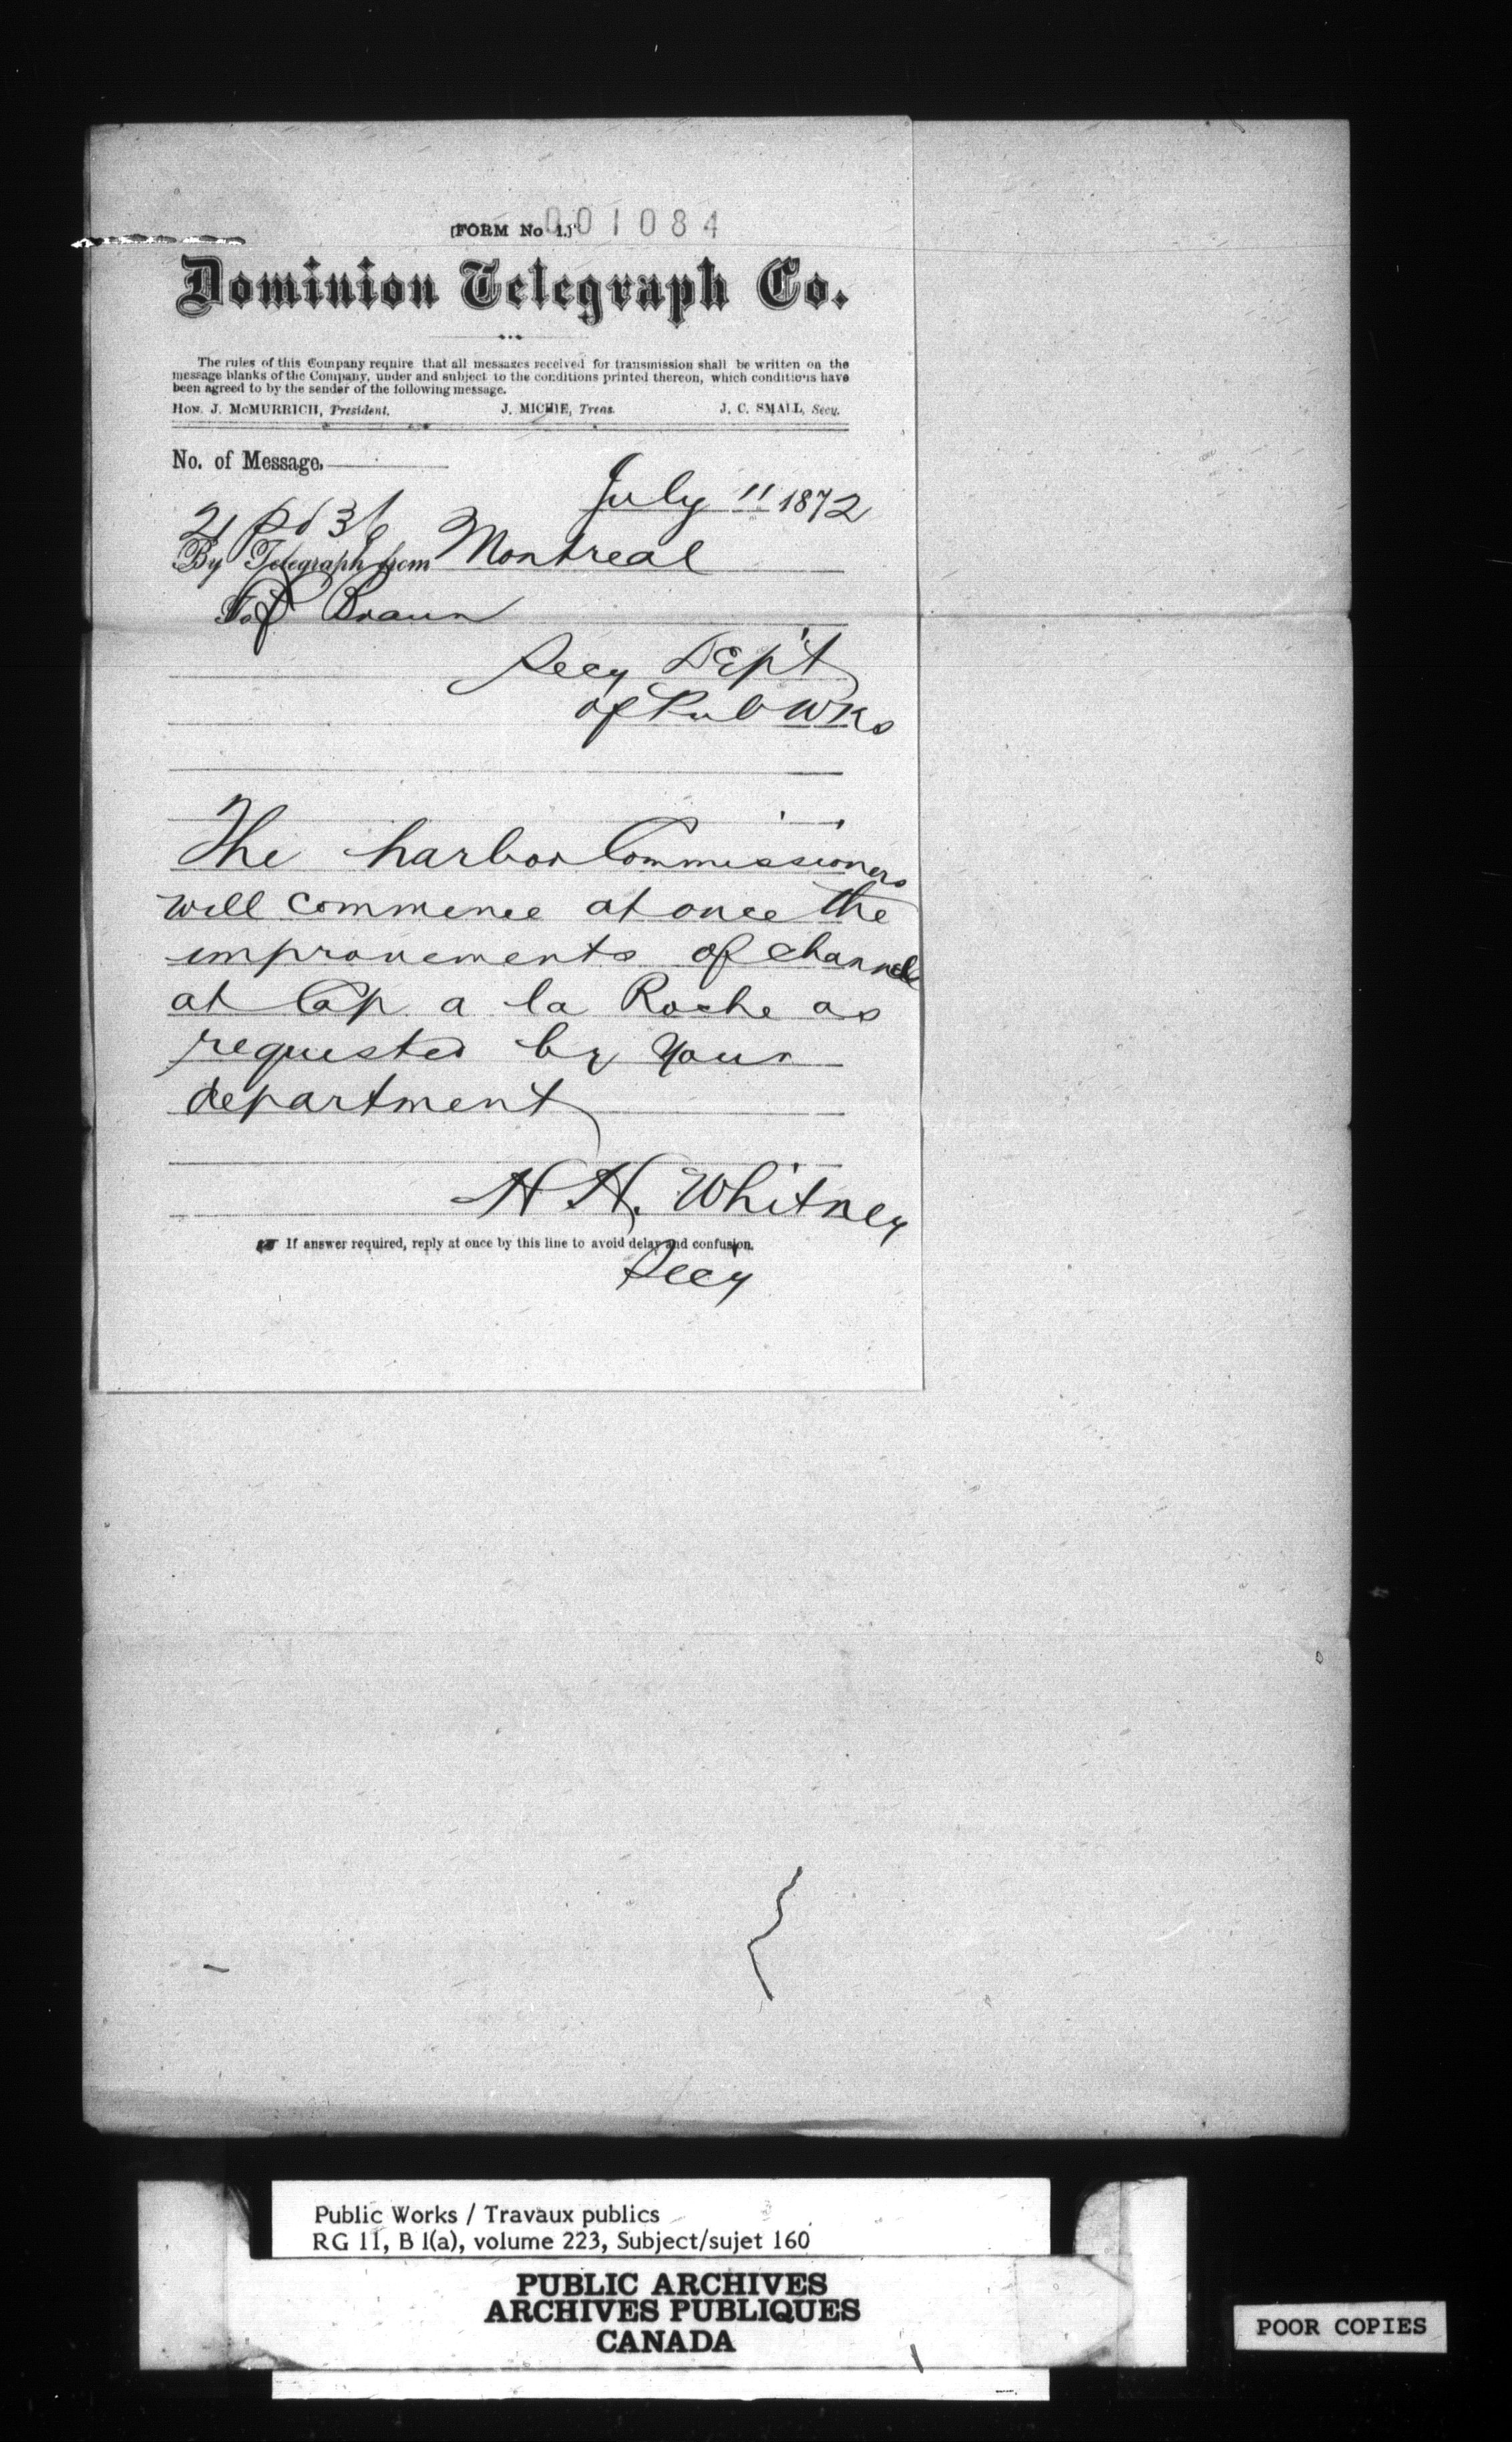 001084
[FORM No 1.]
Dominion Telegraph Co.
The rules of this Company require that all messages received for transmission shall be written on the
message blanks of the Company, under and subject to the conditions printed thereon, which conditions have
been agreed to by the sender of the following message.
HON. J. McMURRICH, President. J. MICHIE, Treas. J. C. SMALL, Secy.
No. of Message.
July 11 1872
21 pd 36
By Telegraph from Montreal
To F Braun
Secy DEp't
of Pub WKs
The harbor Commissioners
will commence at once the
improvements of channel
at Cap a la Roche as
requested by your
department
H H. Whitney
If answer required, reply at once by this line to avoid delay and confusion.
Sec'y
Public Works / Travaux publics
RG 11, B 1(a), volume 223, Subject/sujet 160
PUBLIC ARCHIVES
ARCHIVES PUBLIQUES
CANADA
POOR COPIES